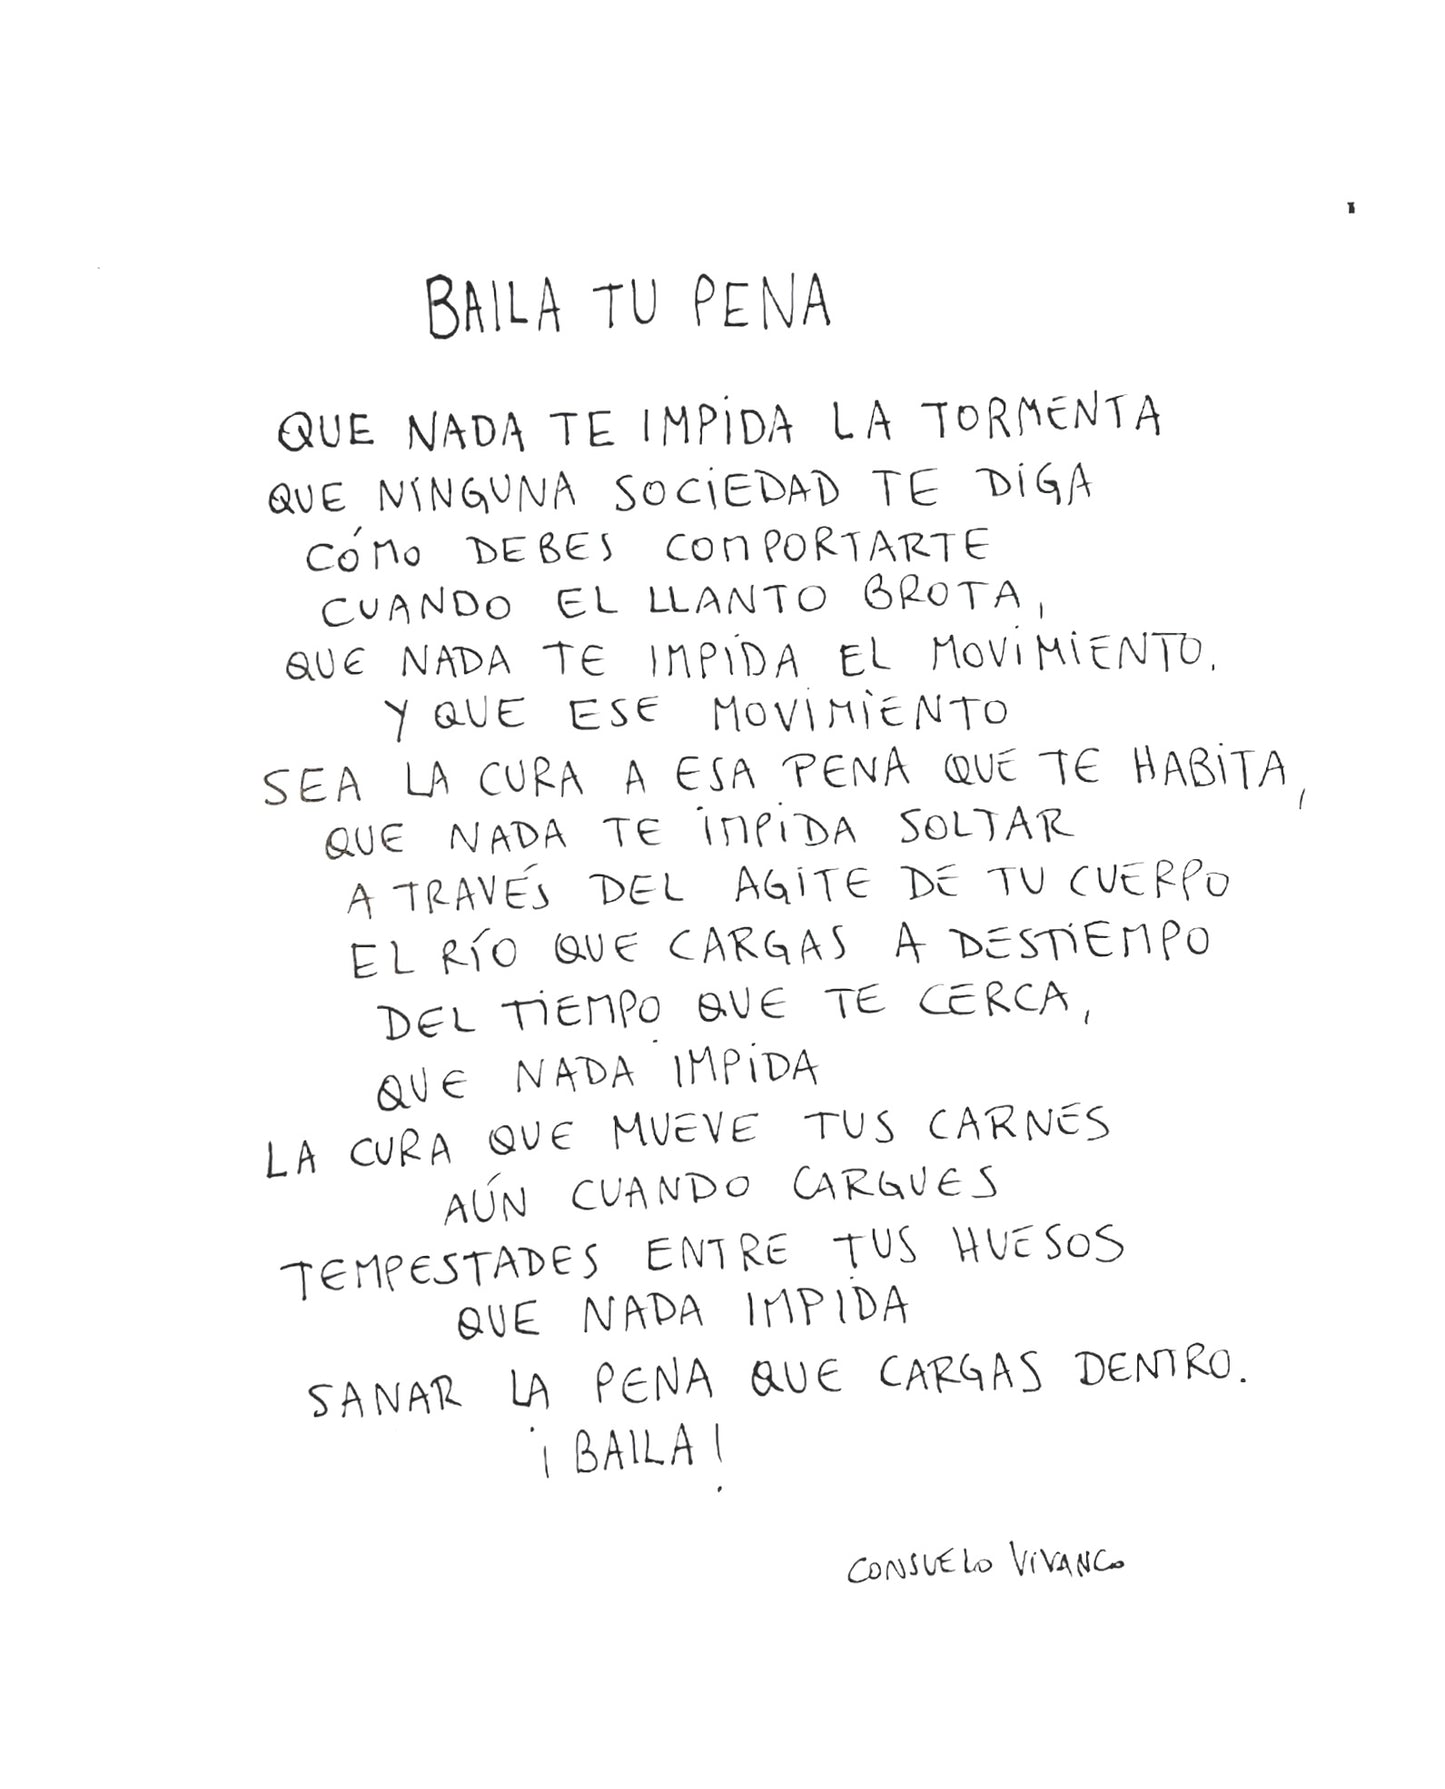 BAILA TU PENA
QUE NADA TE IMPIDA LA TORMENTA
QUE NINGUNA SOCIEDAD TE DIGA
CÓMO DEBES COMPORTARTE
CUANDO EL LLANTO BROTA,
QUE NADA TE IMPIDA EL MOVIMIENTO.
Y QUE ESE MOVIMIENTO
SEA LA CURA A ESA PENA QUE TE HABITA,
QUE NADA TE IMPIDA SOLTAR
A TRAVÉS DEL AGITE DE TU CUERPO
EL RÍO QUE CARGAS A DESTIEMPO
DEL TIEMPO QUE TE CERCA,
QUE NADA IMPIDA
LA CURA QUE MUEVE TUS CARNES
AÚN CUANDO CARGUES
TEMPESTADES ENTRE TUS HUESOS
QUE NADA IMPIDA
SANAR LA PENA QUE CARGAS DENTRO.
¡BAILA!
CONSUELO VIVANCO